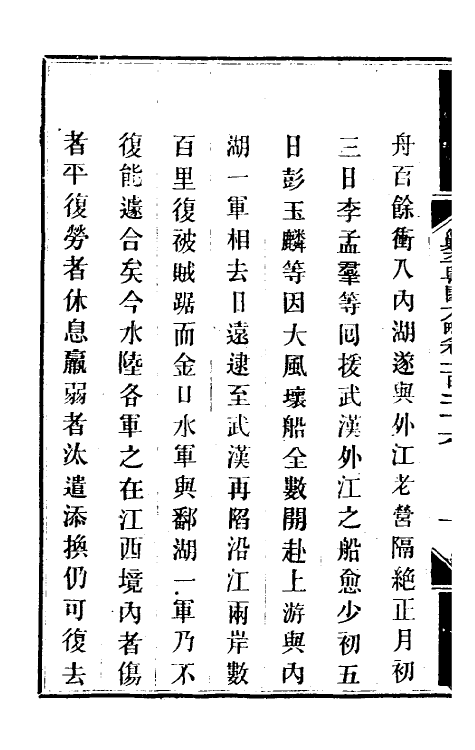 舟百餘衝入內湖遂與外江老營隔絶正月初
三日李孟羣等囘援武漢外江之船愈少初五
日彭玉麟等因大風壞船全數開赴上游與內
湖一軍相去日遠逮至武漢再陷沿江兩岸數
百里復被賊踞而金口水軍與鄱湖一軍乃不
復能遽合矣今水陸各軍之在江西境內者傷
者平復勞者休息羸弱者汰遣添換仍可復去